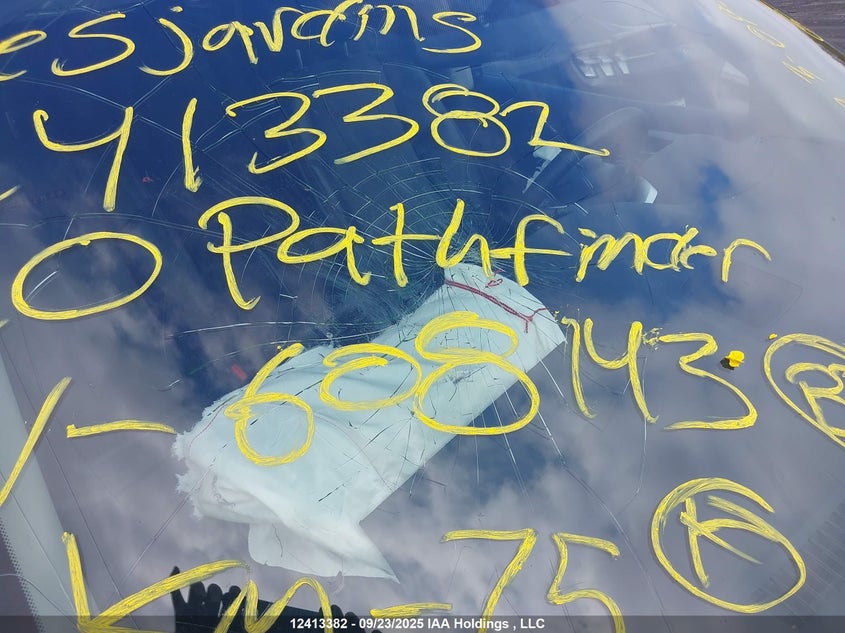 esjardins
413382
0 Pathfinder
1-608143 R
Km-75 K
12413382 - 09/23/2025 IAA Holdings , LLC